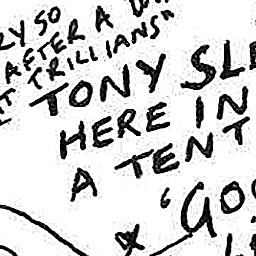 RY SO
AFTER A
TRILLIANS"
TONY SL
HERE IN
A TENT
'GO